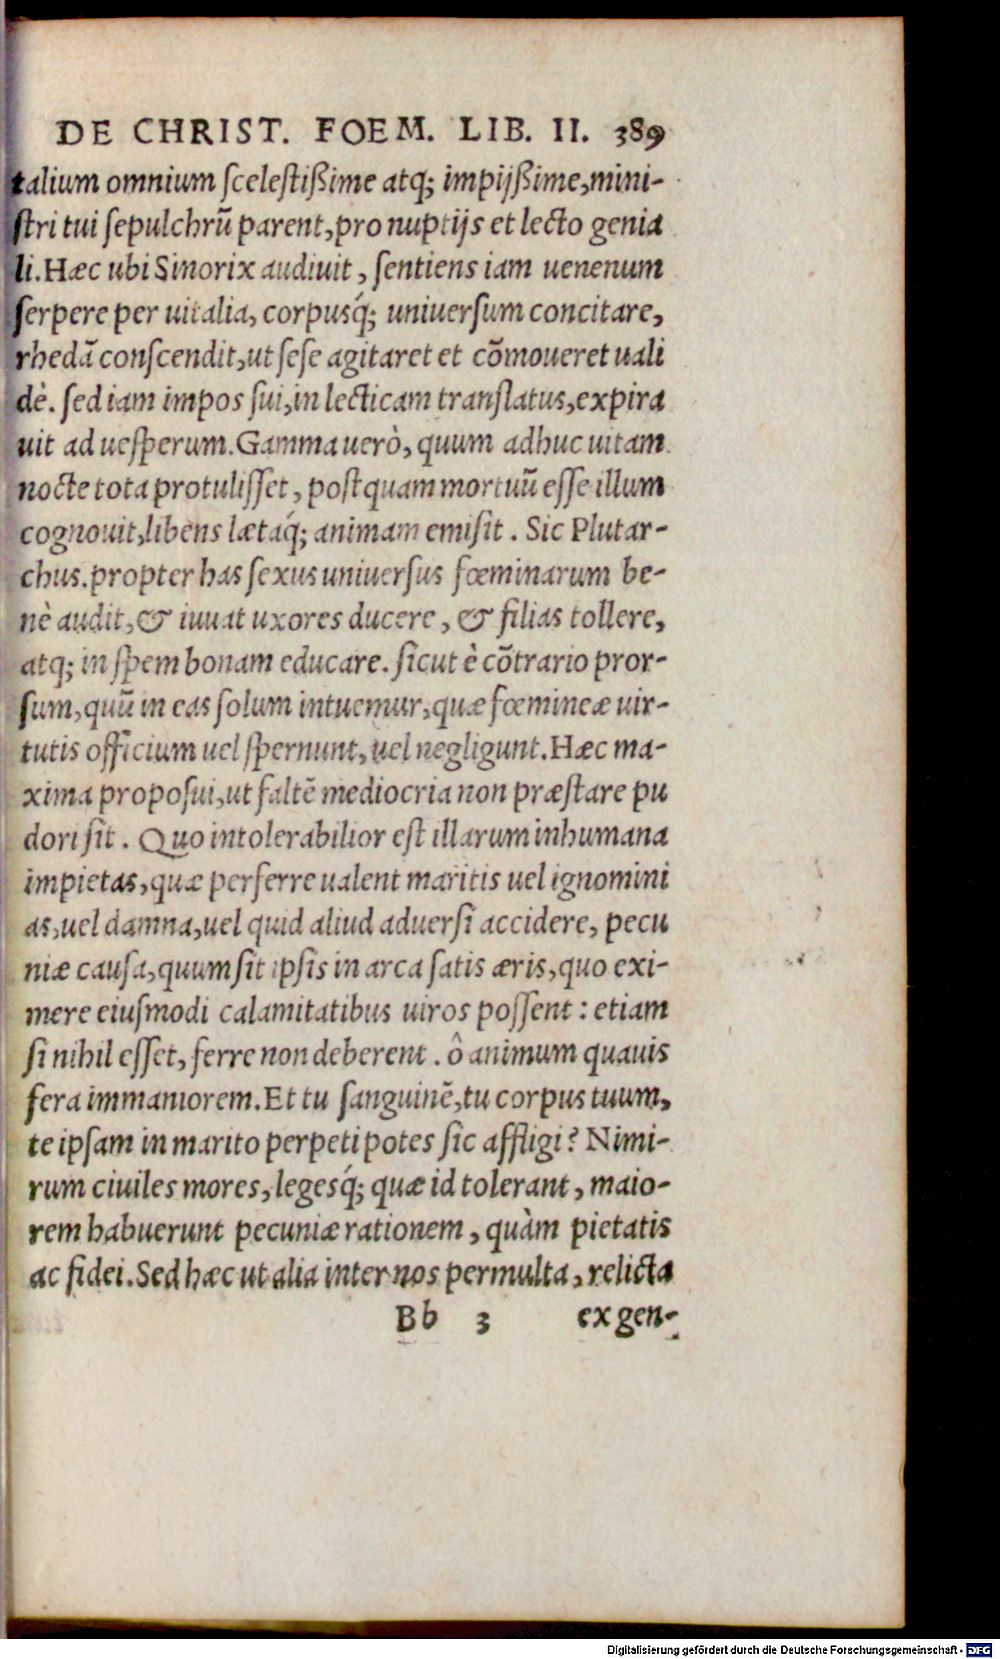 DE CHRIST. FOEM. LIB. II. 389
talium omnium scelestißime atq; impijßime, mini-
stri tui sepulchrũ parent, pro nuptijs et lecto genia
li. Hæc ubi Sinorix audiuit, sentiens iam uenenum
serpere per uitalia, corpusq́; uniuersum concitare,
rhedã conscendit, ut sese agitaret et cõmoueret uali
dè. sed iam impos sui, in lecticam translatus, expira
uit ad uesperum. Gamma uerò, quum adhuc uitam
nocte tota protulisset, postquam mortuũ esse illum
cognouit, libens lætaq́; animam emisit. Sic Plutar-
chus. propter has sexus uniuersus fœminarum be-
nè audit, & iuuat uxores ducere, & filias tollere,
atq; in spem bonam educare. sicut è cõtrario pror-
sum, quũ in eas solum intuemur, quæ fœmineæ uir-
tutis officium uel spernunt, uel negligunt. Hæc ma-
xima proposui, ut saltẽ mediocria non præstare pu
dori sit. Quo intolerabilior est illarum inhumana
impietas, quæ perferre ualent maritis uel ignomini
as, uel damna, uel quid aliud aduersi accidere, pecu
niæ causa, quum sit ipsis in arca satis æris, quo exi-
mere eiusmodi calamitatibus uiros possent: etiam
si nihil esset, ferre non deberent. ô animum quauis
fera immaniorem. Et tu sanguinẽ, tu corpus tuum,
te ipsam in marito perpeti potes sic affligi? Nimi-
rum ciuiles mores, legesq́; quæ id tolerant, maio-
rem habuerunt pecuniæ rationem, quàm pietatis
ac fidei. Sed hæc ut alia inter nos permulta, relicta
Bb 3 ex gen-
Digitalisierung gefördert durch die Deutsche Forschungsgemeinschaft - DFG